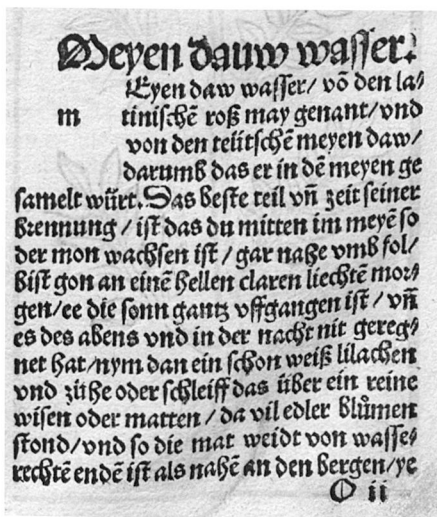 Meyen dauw wasser.
Eyen daw wasser/ võ den la-
m tinischẽ roß may genant/vnd
von den teütschẽ meyen daw/
darumb das er in dẽ meyen ge
samelt würt. Das beste teil vñ zeit seiner
brennung / ist das du mitten im meyẽ so
der mon wachsen ist / gar nahe vmb fol/
bist gon an einẽ hellen claren liechtẽ mor-
gen/ee die sonn gantz vffgangen ist / vñ
es des abens vnd in der nacht nit gereg-
net hat/nym dan ein schon weiß lilachen
vnd zühe oder schleiff das über ein reine
wisen oder matten / da vil edler blůmen
stond/vnd so die mat weidt von wasse-
rechtẽ endẽ ist als nahẽ an den bergen/ye
O ii